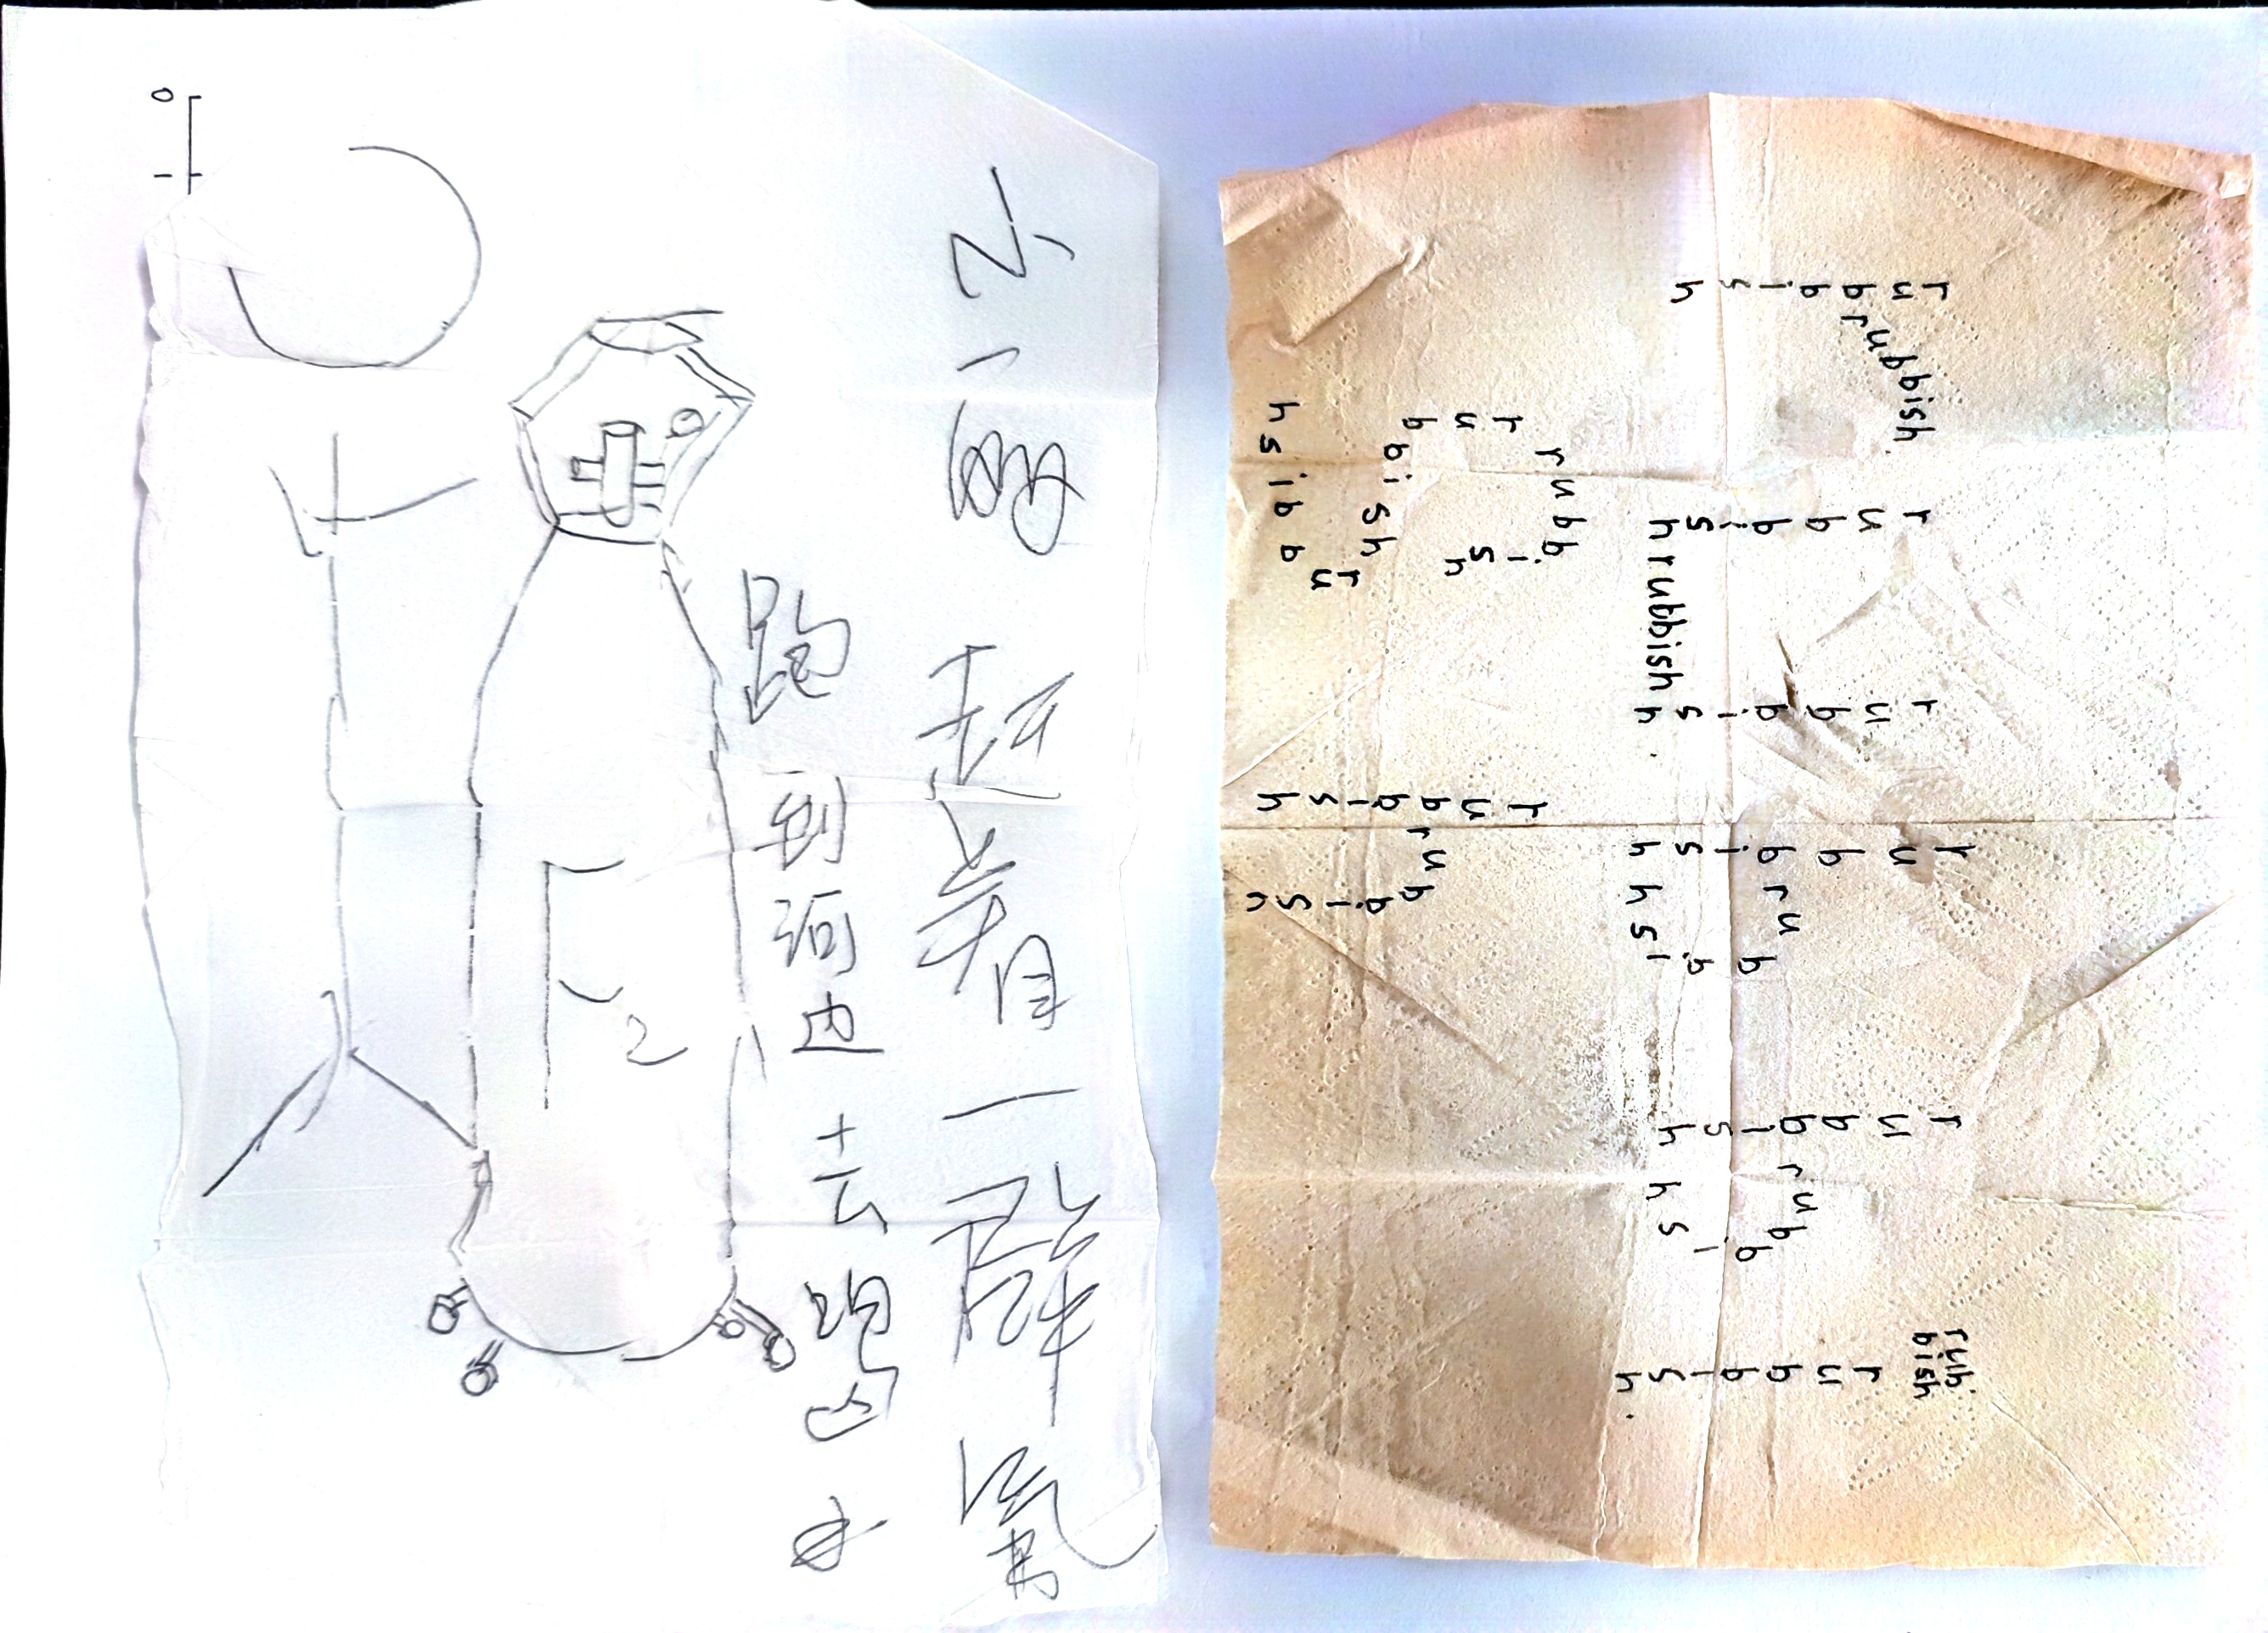 着一群
跑到河边去
0
1
2
rubbish
rubbish
rubbish
rubbish
rubbish.
rubbish
rubbish
rubbish
rubbish
rub
bish
rubbish.
rubbish
rubbish
rubbish
rubbish
rubbish